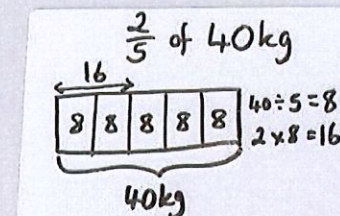 2/5 of 40kg
16
8 8 8 8 8
40÷5=8
2×8=16
40kg